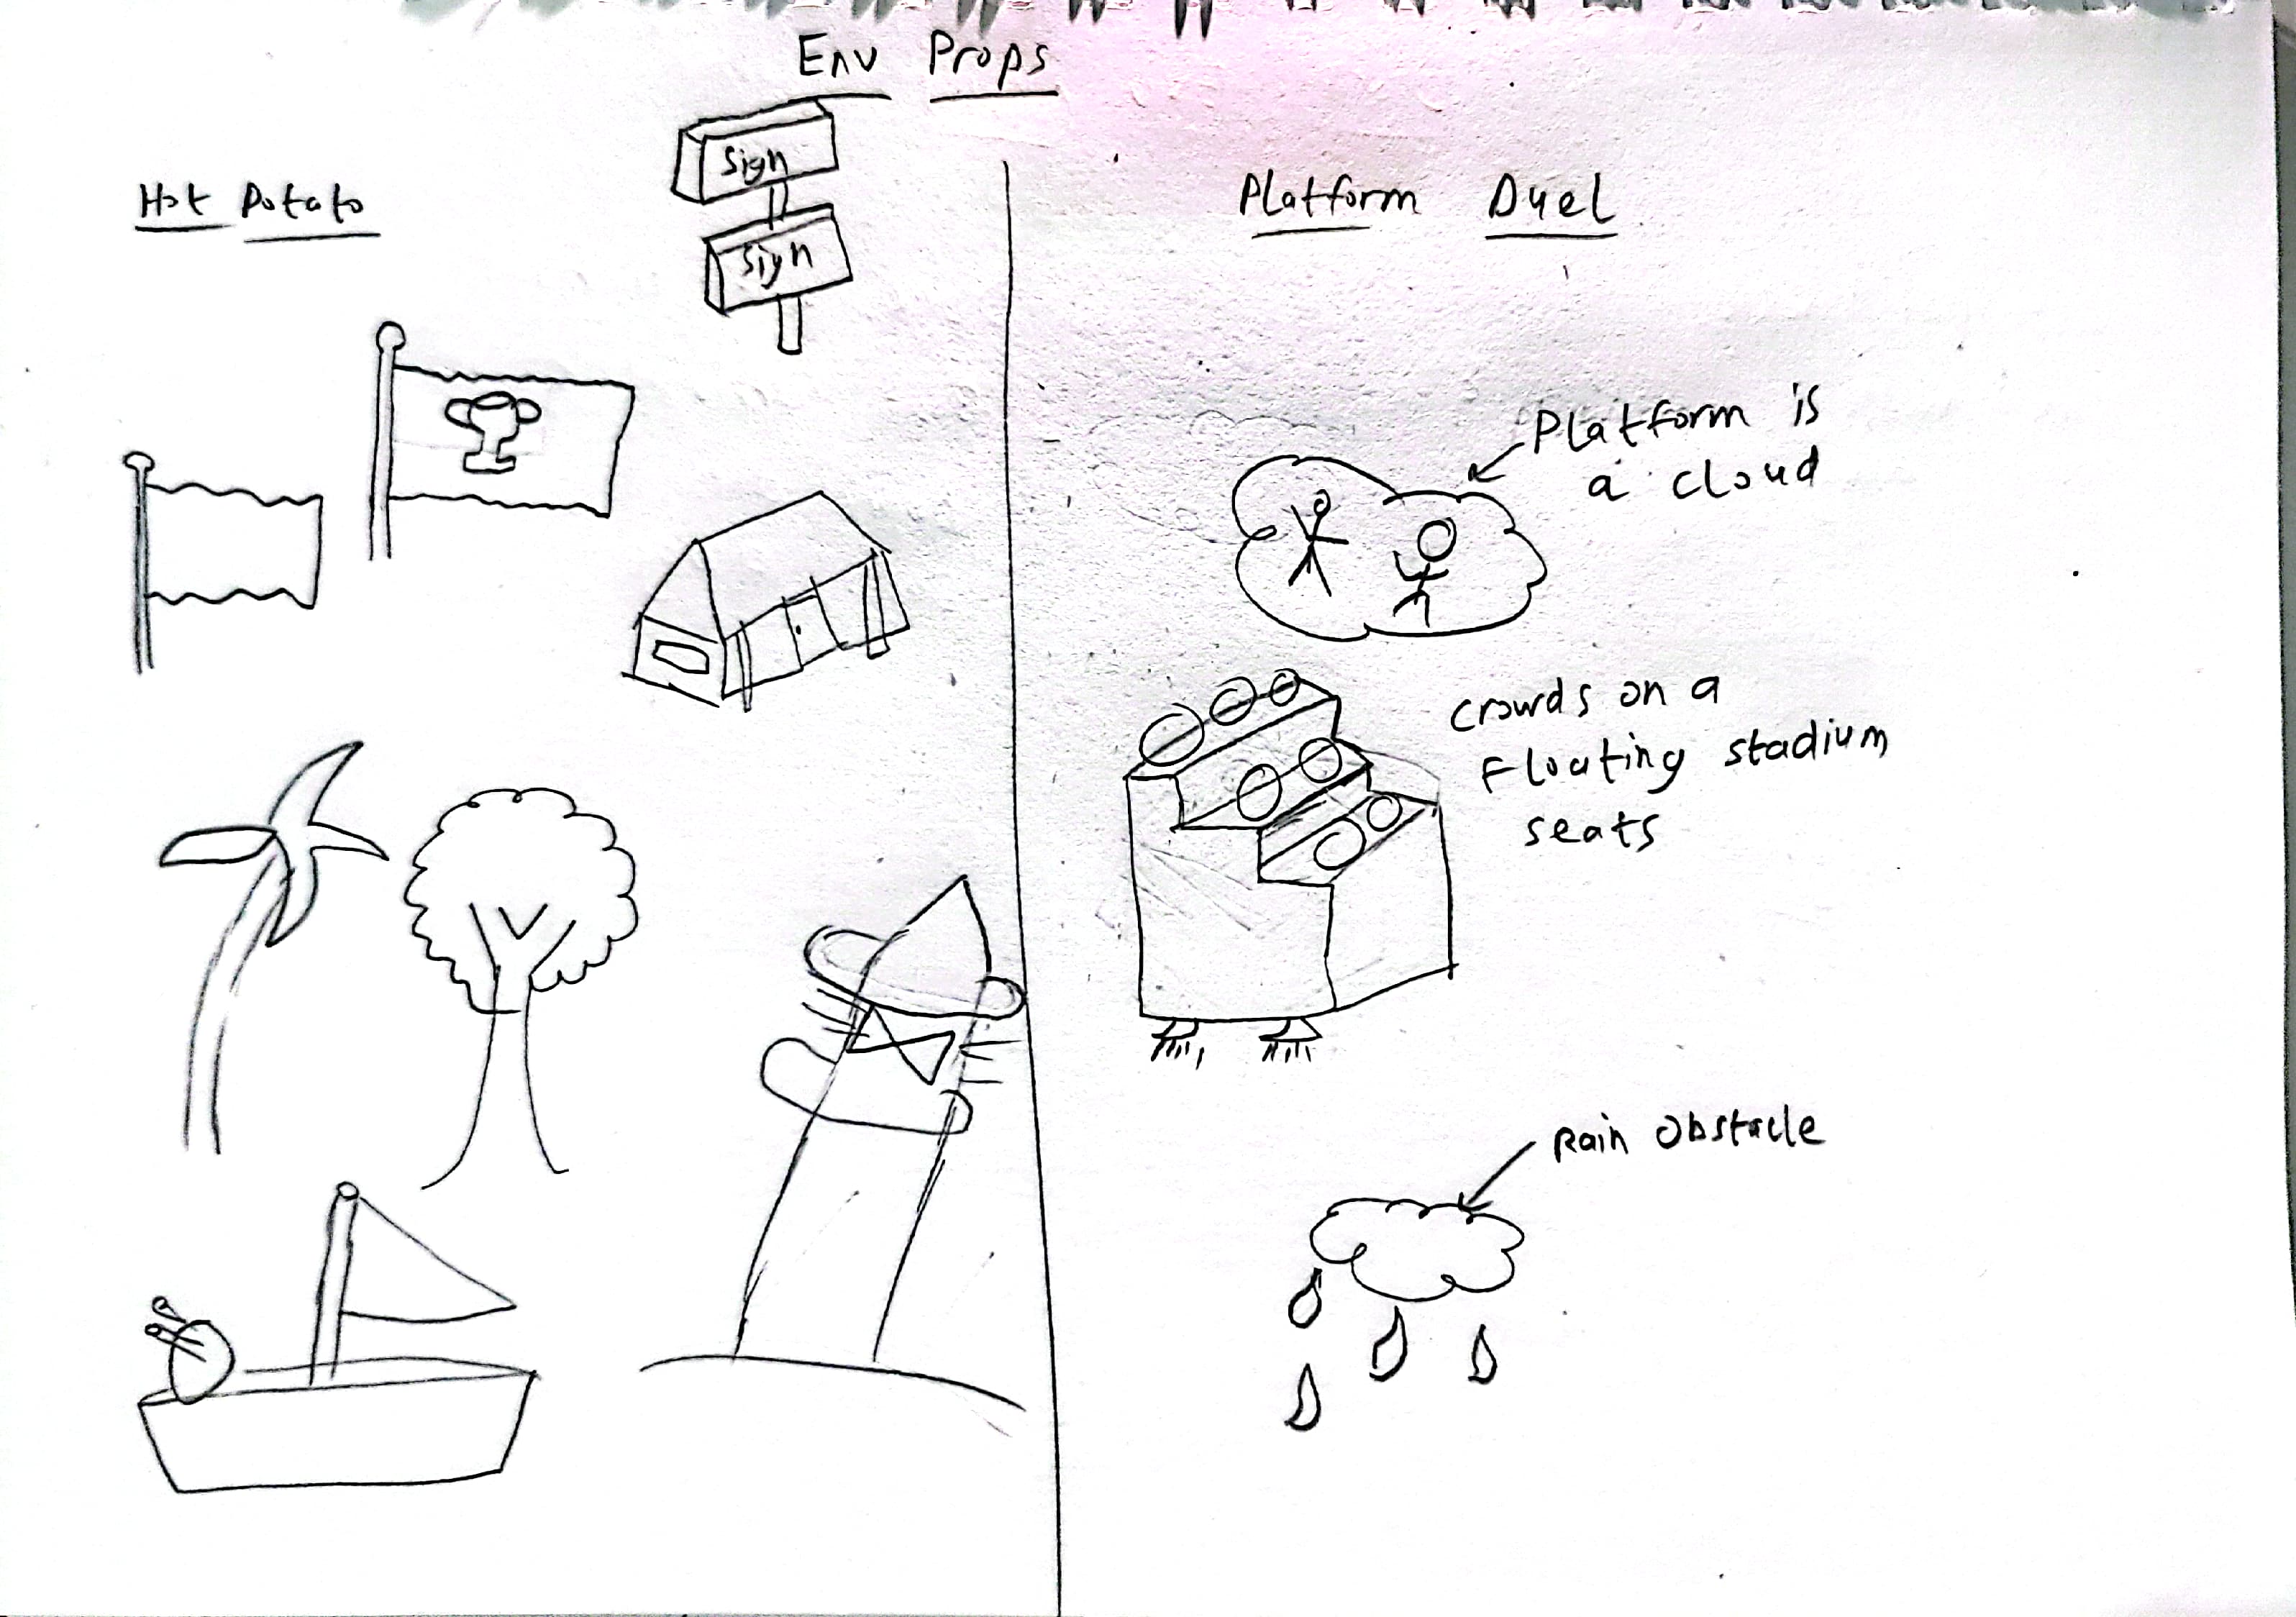 Env Props
Hot Potato
Sign
Sign
Platform Duel
Platform is
a cloud
crowds on a
Floating stadium
seats
Rain Obstacle